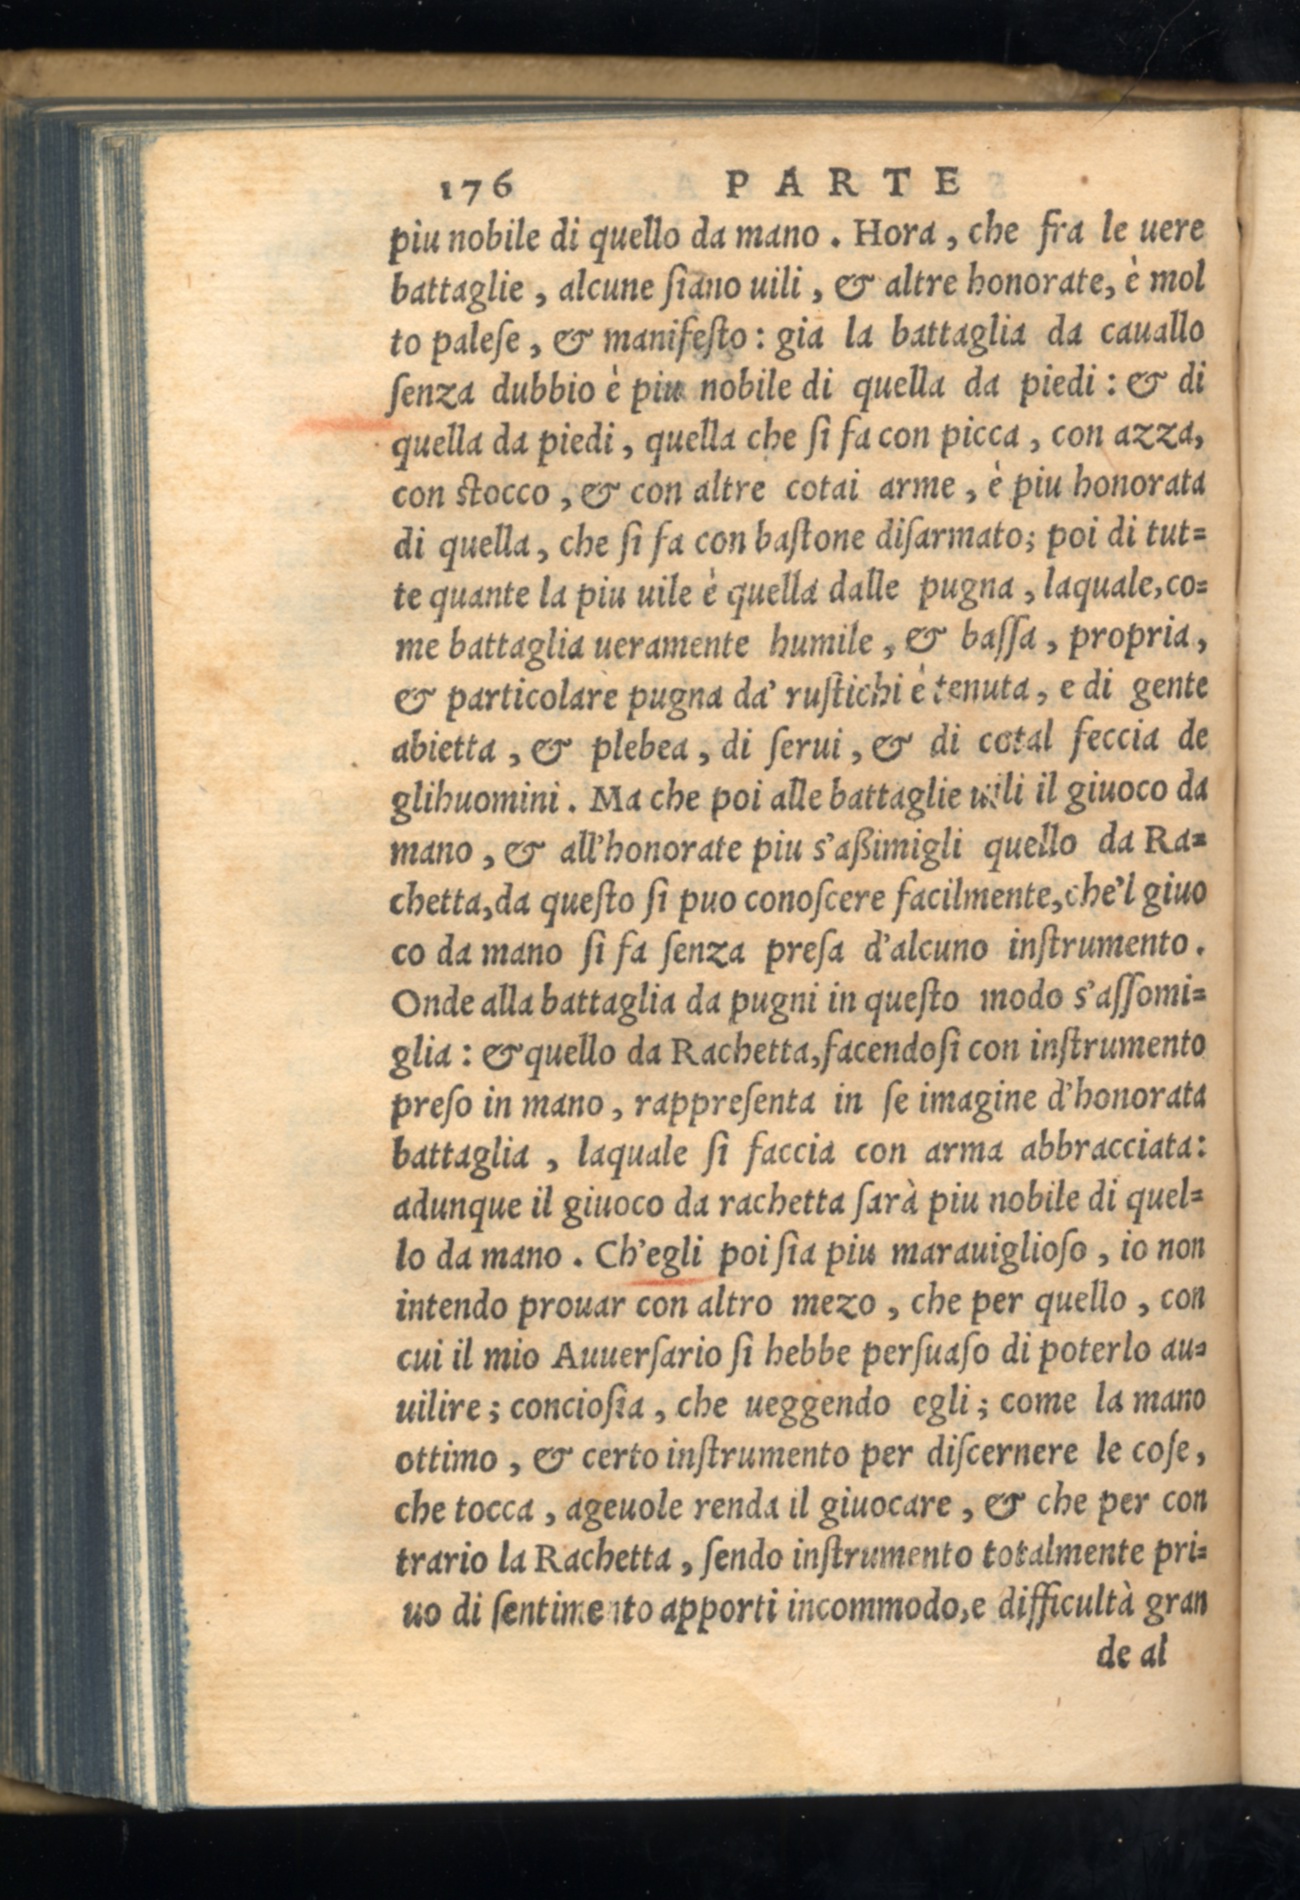 176 PARTE
piu nobile di quello da mano. Hora, che fra le uere
battaglie, alcune ſiano uili, & altre honorate, è mol
to paleſe, & manifeſto: gia la battaglia da cauallo
ſenza dubbio è piu nobile di quella da piedi: & di
quella da piedi, quella che ſi fa con picca, con azza,
con ſtocco, & con altre cotai arme, è piu honorata
di quella, che ſi fa con baſtone diſarmato; poi di tut=
te quante la piu uile è quella dalle pugna, laquale, co=
me battaglia ueramente humile, & baſſa, propria,
& particolare pugna da' ruſtichi è tenuta, e di gente
abietta, & plebea, di ſerui, & di cotal feccia de
glihuomini. Ma che poi alle battaglie uili il giuoco da
mano, & all'honorate piu s'aßimigli quello da Ra=
chetta, da queſto ſi puo conoſcere facilmente, che'l giuo
co da mano ſi fa ſenza preſa d'alcuno inſtrumento.
Onde alla battaglia da pugni in queſto modo s'aſſomi=
glia: & quello da Rachetta, facendoſi con inſtrumento
preſo in mano, rappreſenta in ſe imagine d'honorata
battaglia, laquale ſi faccia con arma abbracciata:
adunque il giuoco da rachetta ſarà piu nobile di quel=
lo da mano. Ch'egli poi ſia piu marauiglioſo, io non
intendo prouar con altro mezo, che per quello, con
cui il mio Auuerſario ſi hebbe perſuaſo di poterlo au=
uilire; concioſia, che ueggendo egli; come la mano
ottimo, & certo inſtrumento per diſcernere le coſe,
che tocca, ageuole renda il giuocare, & che per con
trario la Rachetta, ſendo inſtrumento totalmente pri=
uo di ſentimento apporti incommodo, e difficultà gran
de al